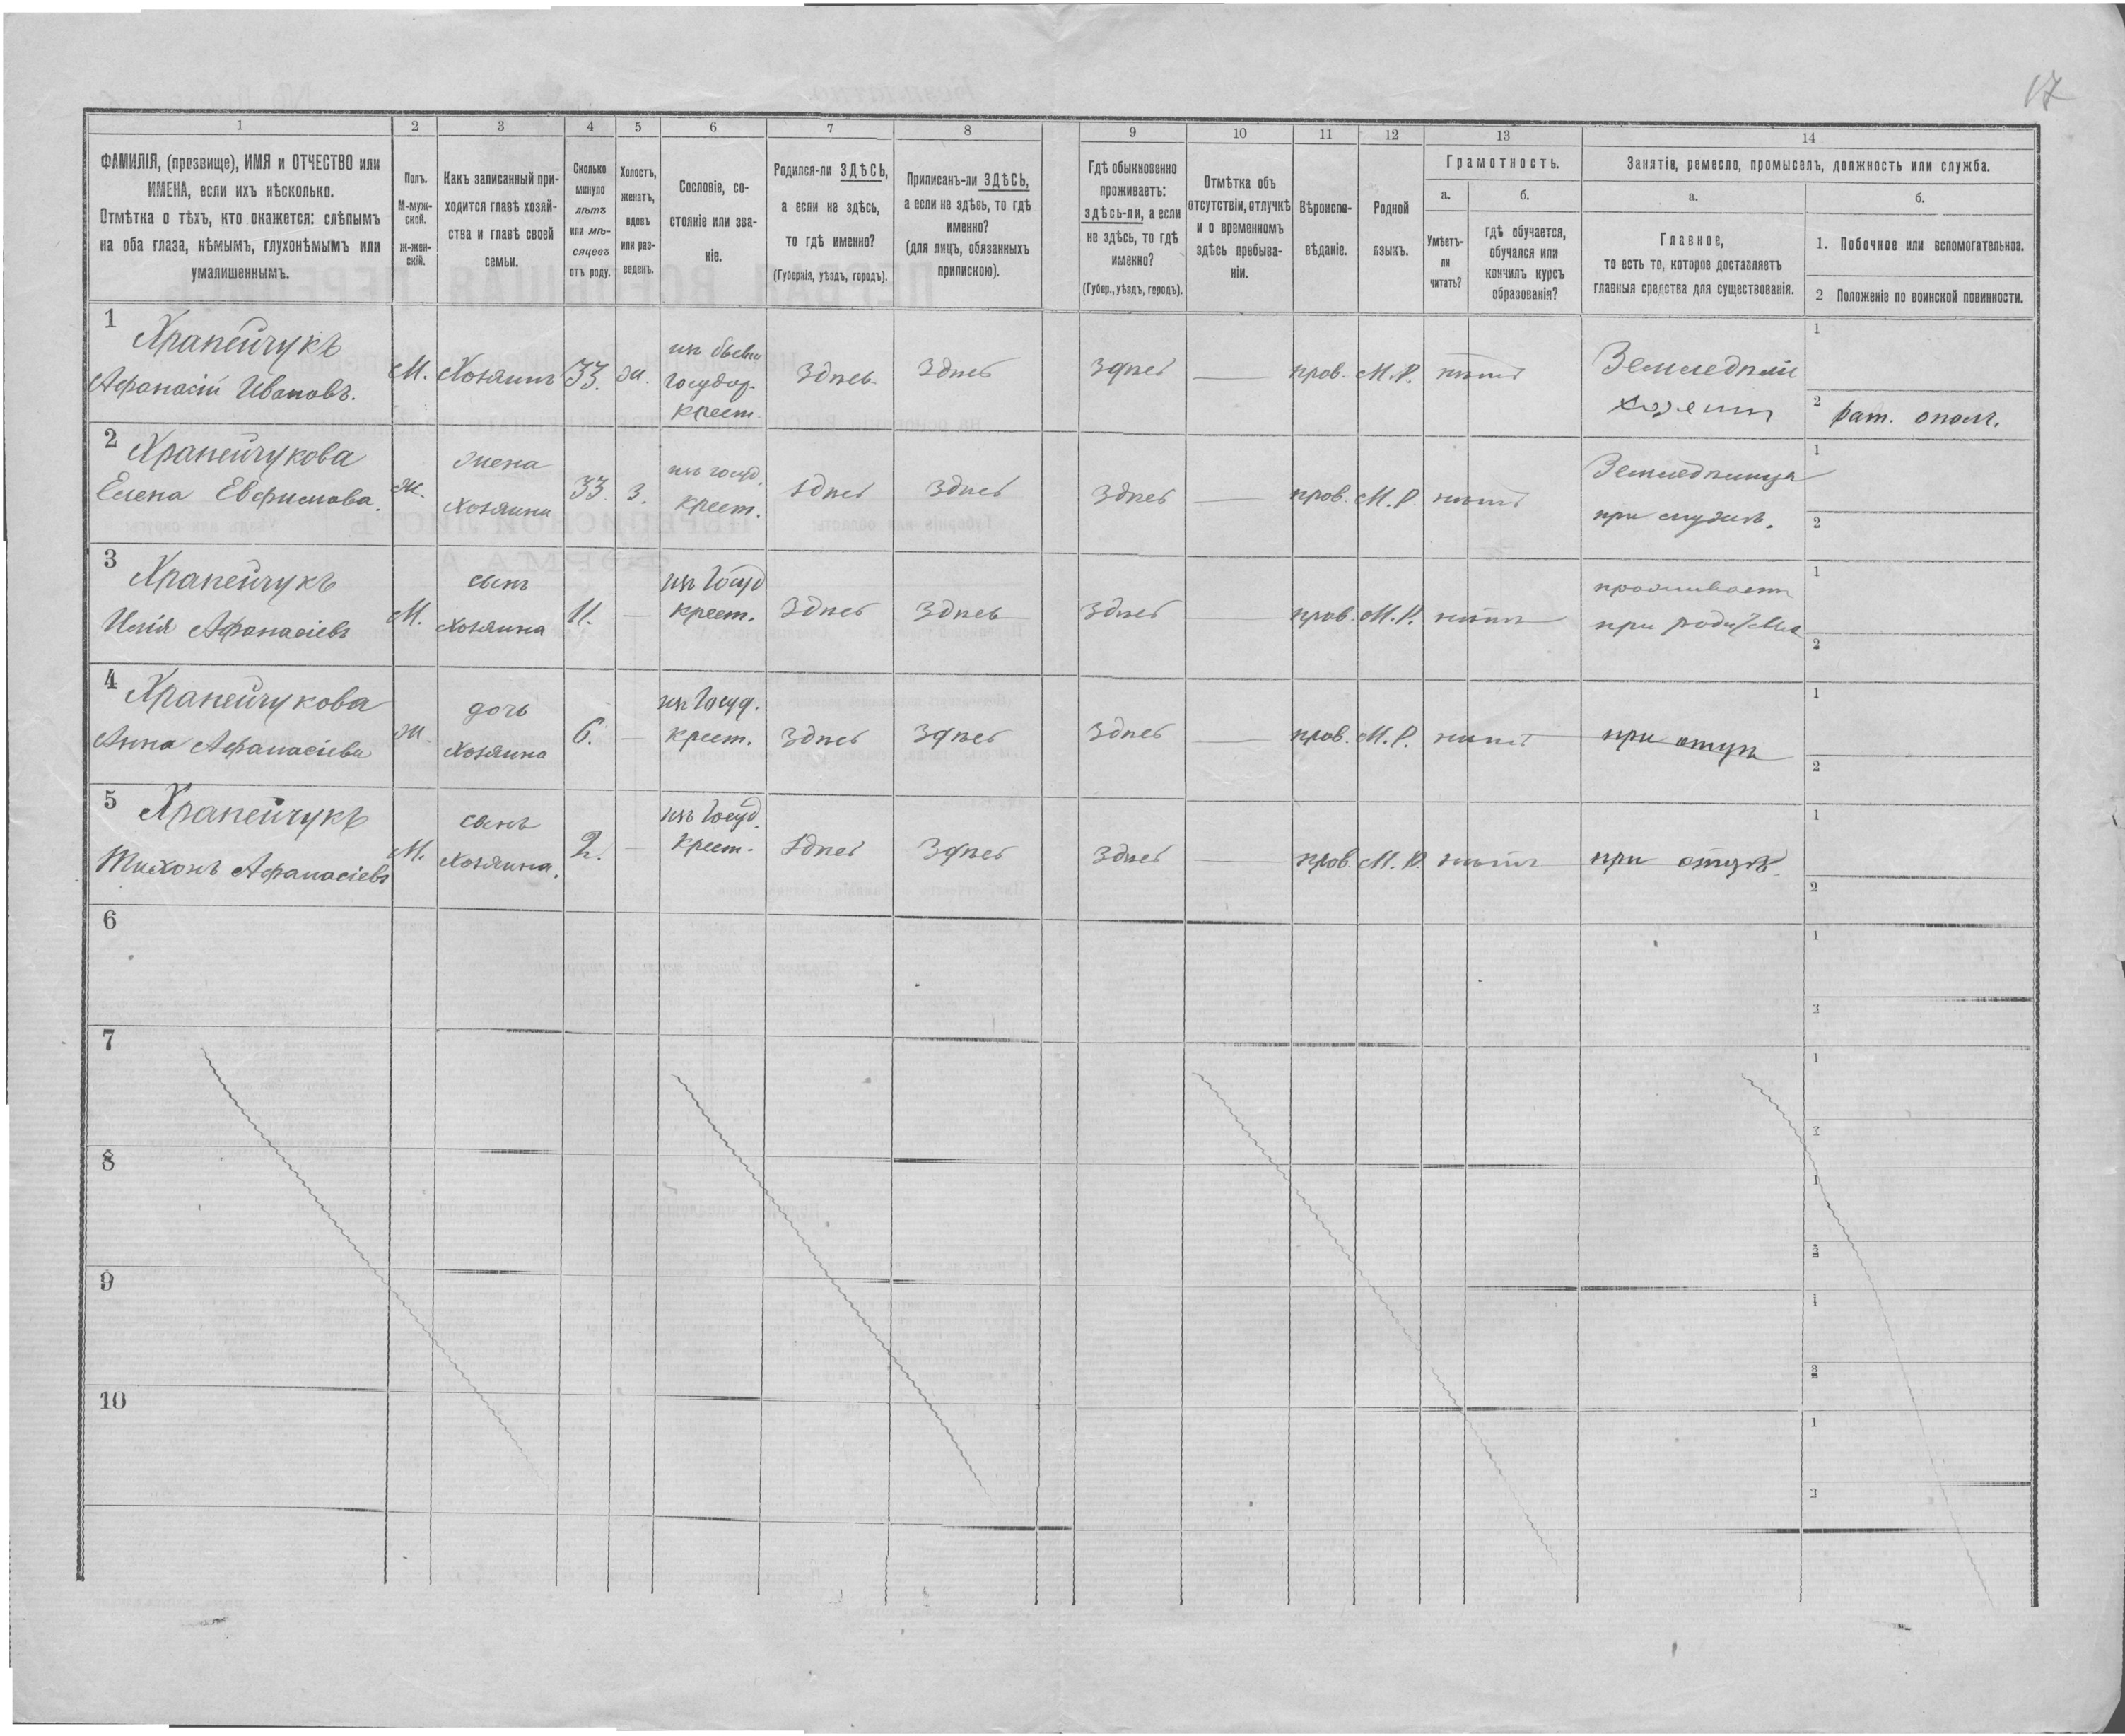 17
1 2 3 4 5 6 7 8 9 10 11 12 13 14
ФАМИЛІЯ, (прозвище), ИМЯ и ОТЧЕСТВО или
ИМЕНА, если ихъ нѣсколько.
Отмѣтка о тѣхъ, кто окажется: слѣпымъ
на оба глаза, нѣмымъ, глухонѣмымъ или
умалишеннымъ.
Полъ.
М-муж-
ской.
ж-жен-
скій.
Какъ записанный при-
ходится главѣ хозяй-
ства и главѣ своей
семьи.
Сколько
минуло
лѣтъ
или мѣ-
сяцевъ
отъ роду.
Холостъ,
женатъ,
вдовъ
или раз-
веденъ.
Сословіе, со-
стояніе или зва-
ніе.
Родился-ли ЗДѢСЬ,
а если не здѣсь,
то гдѣ именно?
(Губернія, уѣздъ, городъ).
Приписанъ-ли ЗДѢСЬ,
а если не здѣсь, то гдѣ
именно?
(для лицъ, обязанныхъ
припискою).
Гдѣ обыкновенно
проживаетъ:
здѣсь-ли, а если
не здѣсь, то гдѣ
именно?
(Губер., уѣздъ, городъ).
Отмѣтка объ
отсутствіи, отлучкѣ
и о временномъ
здѣсь пребыва-
ніи.
Вѣроиспо-
вѣданіе.
Родной
языкъ.
Грамотность.
а.
Умѣетъ-
ли
читать?
б.
гдѣ обучается,
обучался или
кончилъ курсъ
образованія?
Занятіе, ремесло, промыселъ, должность или служба.
а.
Главное,
то есть то, которое доставляетъ
главныя средства для существованія.
б.
1. Побочное или вспомогательное.
2 Положеніе по воинской повинности.
1
Храпейчукъ
Афанасій Ивановъ.
М.
Хозяинъ
33.
ж.
изъ бывш
государ.
крест.
Здѣсь
Здѣсь
Здѣсь
прав.
М.Р.
нѣтъ
Земледѣліе
хозяинъ
1
2 рат. ополч.
2
Храпейчукова
Елена Евфимова.
ж.
жена
хозяина
33
з.
изъ госуд.
крест.
здѣсь
здѣсь
здѣсь
прав.
М.Р.
нѣтъ
при мужѣ.
1
2
3
Храпейчукъ
Илія Афанасіевъ
М.
сынъ
хозяина
11.
изъ Госуд
крест.
Здѣсь
Здѣсь
Здѣсь
прав.
М.Р.
нѣтъ
проживаетъ
при
1
2
4
Храпейчукова
Анна Афанасіева
ж.
дочь
хозяина
6.
изъ Госуд.
крест.
Здѣсь
Здѣсь
Здѣсь
прав.
М.Р.
нѣтъ
при отцѣ
1
2
5
Храпейчукъ
Тихонъ Афанасіевъ
М.
сынъ
хозяина.
2.
изъ Госуд.
крест.
Здѣсь
Здѣсь
Здѣсь
прав.
М.Р.
нѣтъ
при отцѣ
1
2
6
1
2
7
1
2
8
1
2
9
1
2
10
1
2